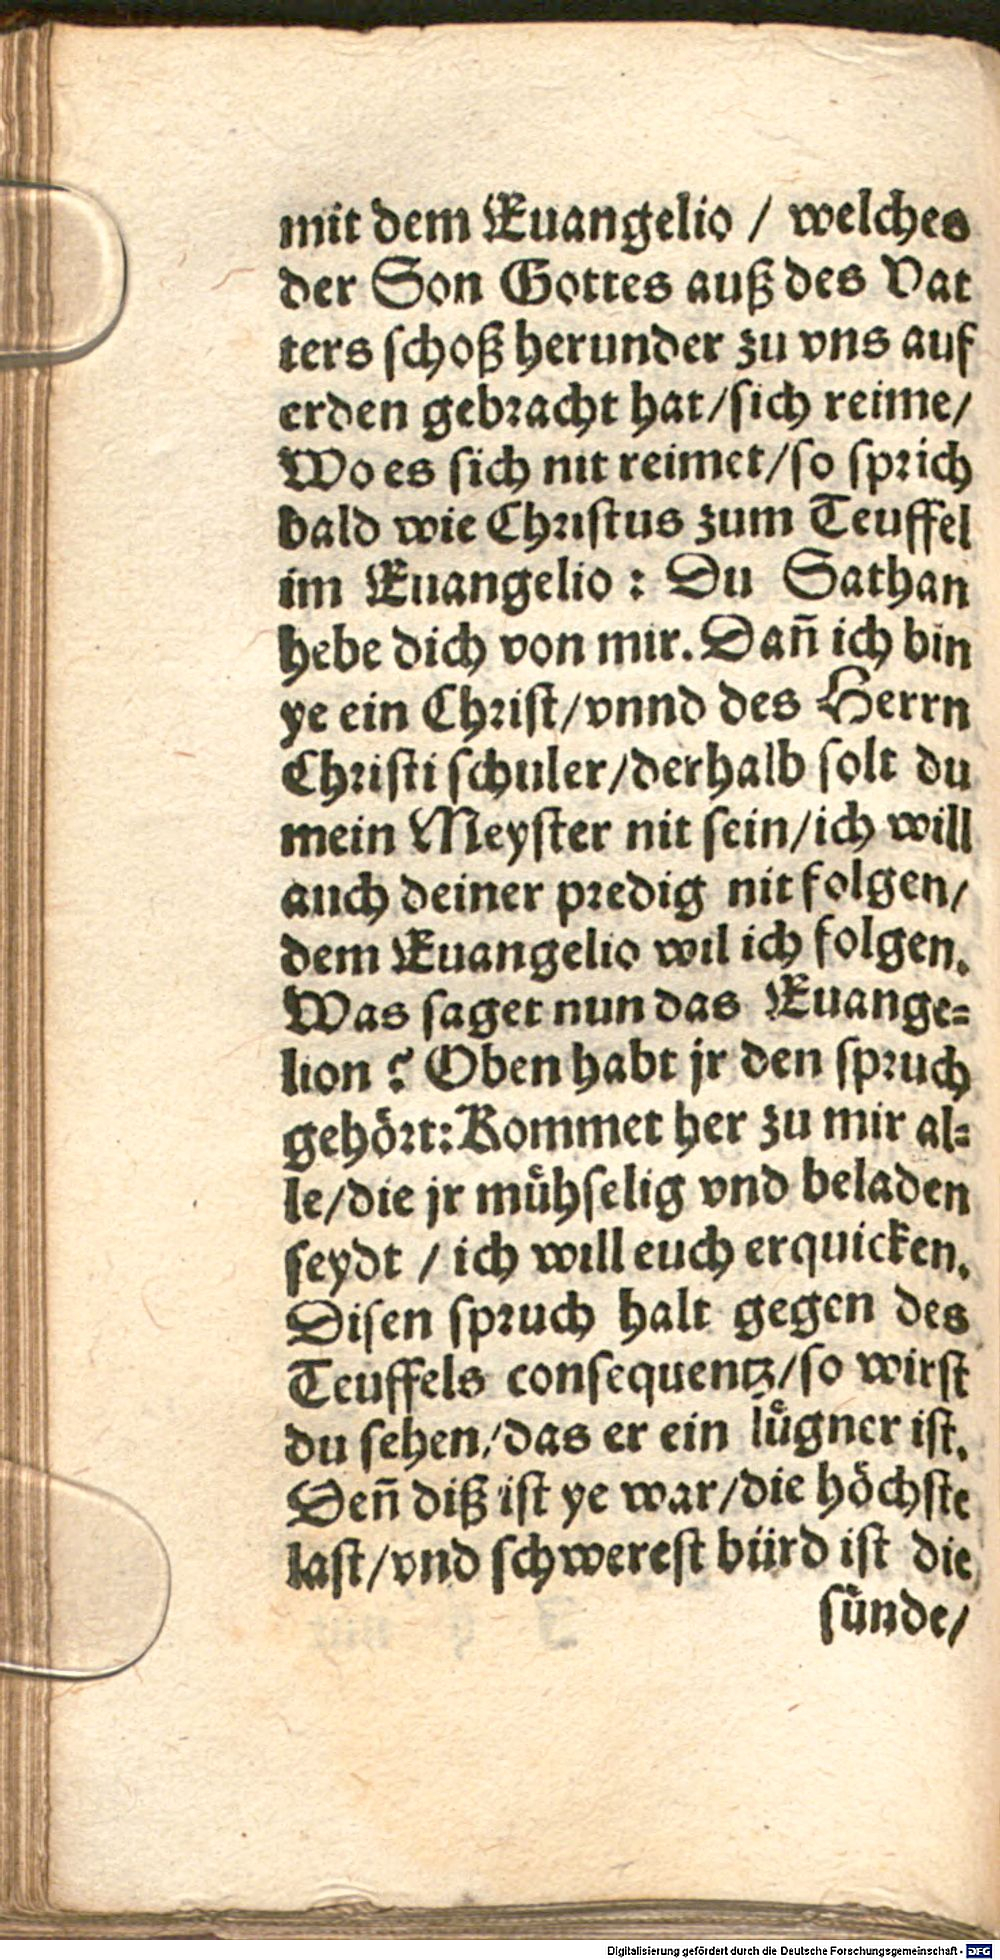 mit dem Euangelio / welches
der Son Gottes auß des Vat
ters schoß herunder zu vns auf
erden gebracht hat/sich reime/
Wo es sich nit reimet/so sprich
bald wie Christus zum Teuffel
im Euangelio : Du Sathan
hebe dich von mir. Dañ ich bin
ye ein Christ/vnnd des Herrn
Christi schuler/derhalb solt du
mein Meyster nit sein/ich will
auch deiner predig nit folgen/
dem Euangelio wil ich folgen.
Was saget nun das Euange=
lion ? Oben habt jr den spruch
gehört: Kommet her zu mir al=
le/die jr mühselig vnd beladen
seydt / ich will euch erquicken.
Disen spruch halt gegen des
Teuffels consequentz/so wirst
du sehen/das er ein lügner ist.
Deñ diß ist ye war/die höchste
last/vnd schwerest bürd ist die
sünde/
Digitalisierung gefördert durch die Deutsche Forschungsgemeinschaft - DFG